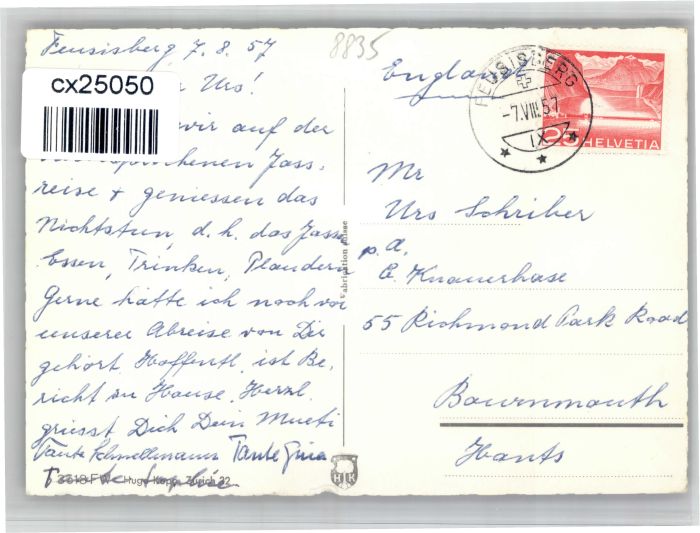 Feusisberg 7. 8. 57
8835
cx25050
Urs!
wir auf der
Jass,
reise + geniessen das
Nichtstun, d. h. das Jassen
Essen, Trinken, Plaudern
Gerne hätte ich noch vor
unserer Abreise von Dir
gehört. Hoffentl. ist Be,
richt zu Hause. Herzl.
grüsst Dich Dein Mueti
Tante Schmellmann Tante Gina
Fabrication Suisse
33618 FW Hugo Kopp, Zürich 32
HK
England
FEUSISBERG
-7.VIII.57
IX
25 HELVETIA
Mr
Urs Schriber
p. a.
E. Knauerhase
55 Richmond Park Road
Bournmouth
Hants